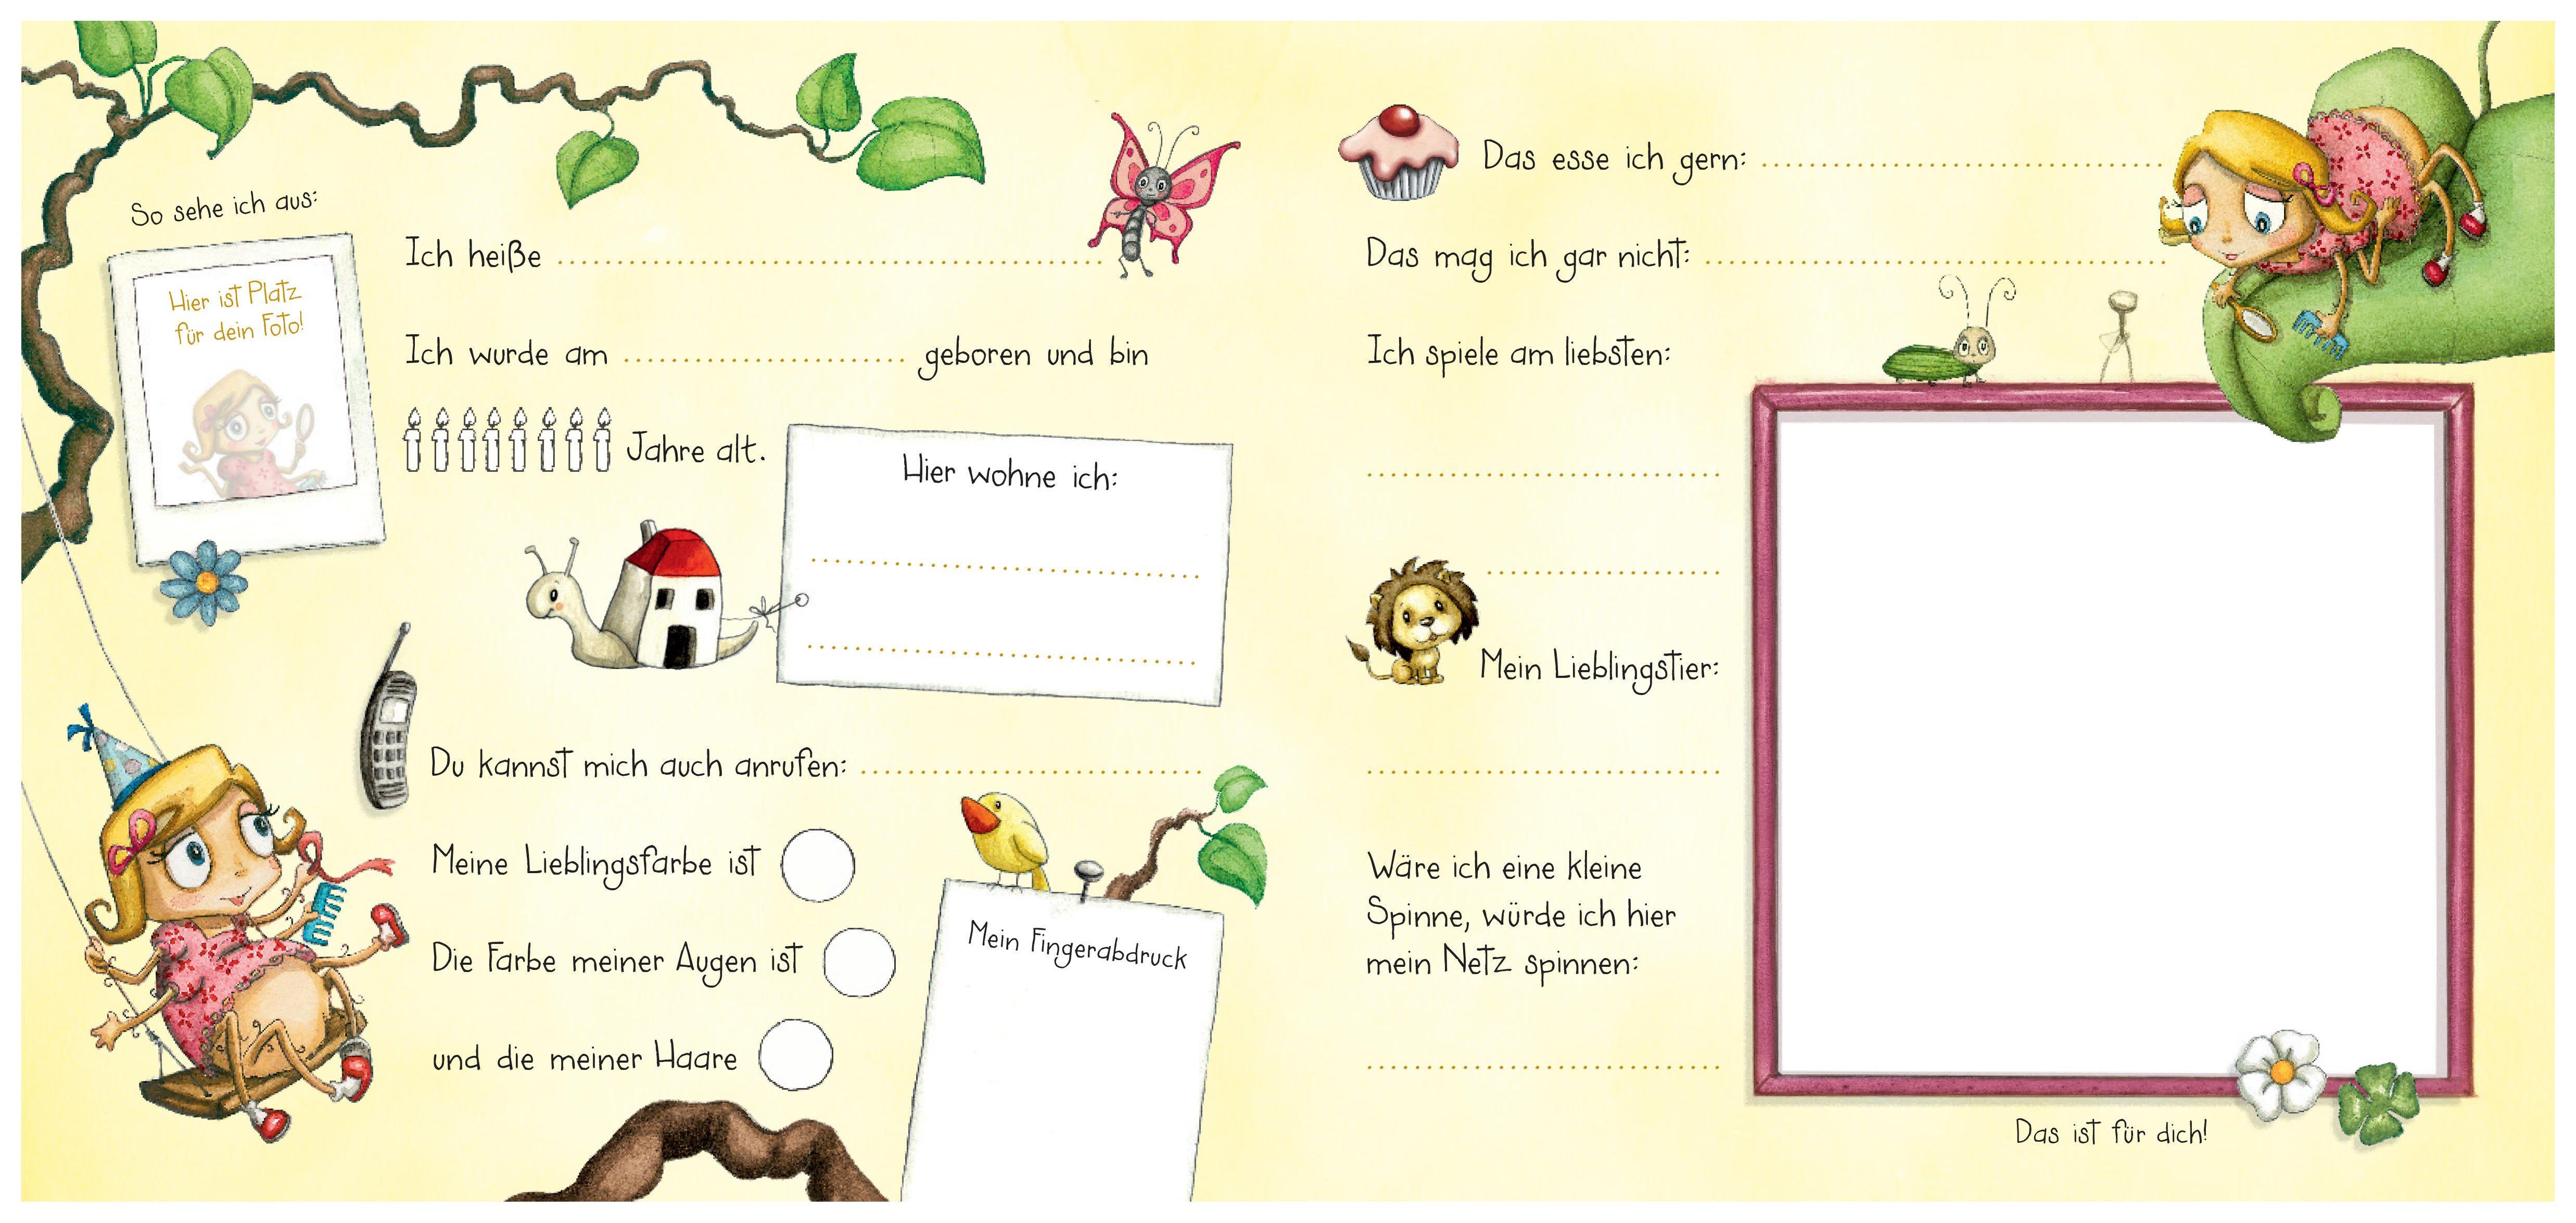 So sehe ich aus:
Hier ist Platz
für dein Foto!
Ich heiße
Ich wurde am geboren und bin
Jahre alt.
Hier wohne ich:
Du kannst mich auch anrufen:
Meine Lieblingsfarbe ist
Die Farbe meiner Augen ist
und die meiner Haare
Mein Fingerabdruck
Das esse ich gern:
Das mag ich gar nicht:
Ich spiele am liebsten:
Mein Lieblingstier:
Wäre ich eine kleine
Spinne, würde ich hier
mein Netz spinnen:
Das ist für dich!